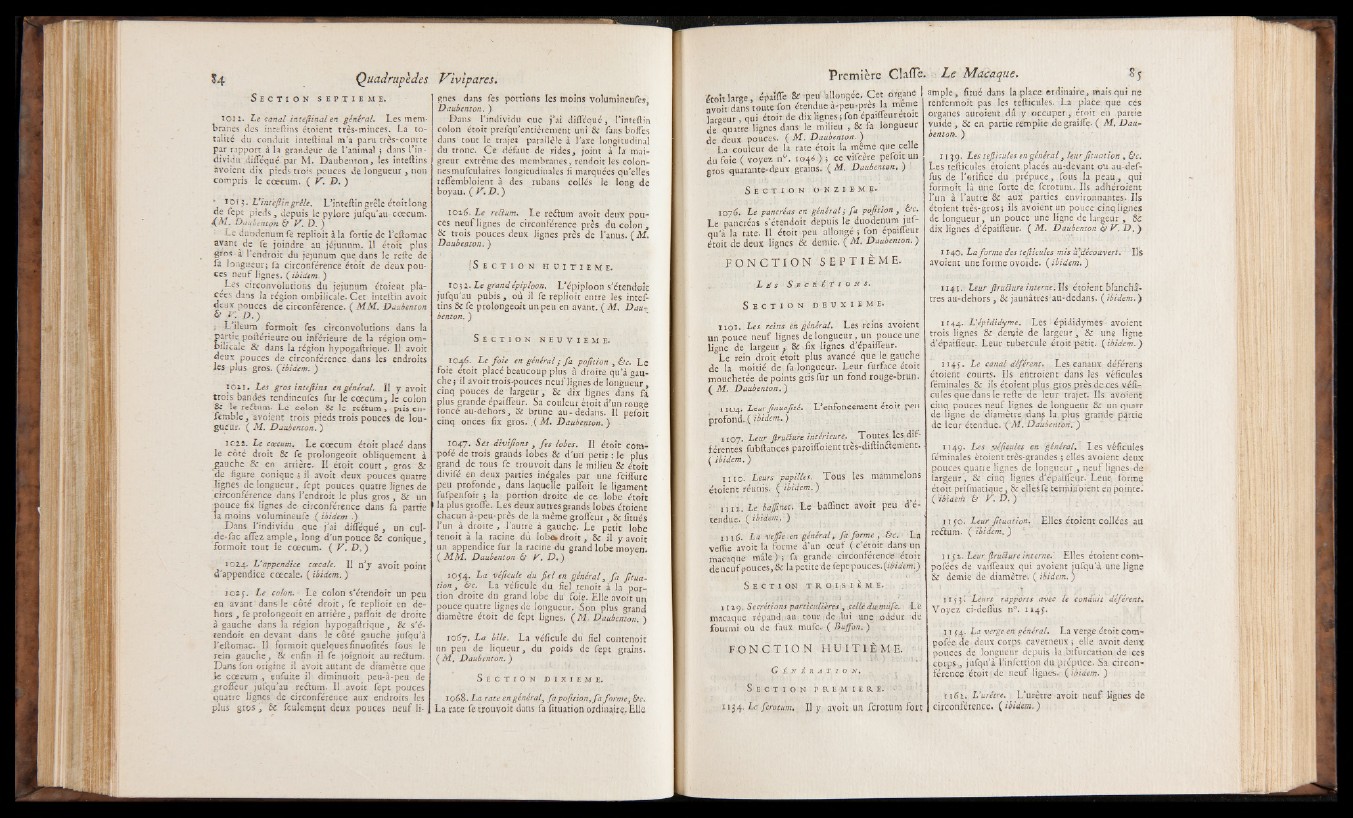 84 Quadrupèdes Vivipares.
SECTION SEPTIEME.
1012. Le canal intestinal en général. Les mem-
branes des intestins étoient très-minces. La to-
talité du conduit intestinal m'a paru très-courte
par rapport à la grandeur de l'animal ; dans l'in-
dividu disséqué par M. Daubenton, les intestins
avoient dix pieds trois pouces de longueur, non
compris le cœcum. ( V. D. )
1013. L'intestin grêle. L'intestin grêle étoit long
de sept pieds, depuis le pylore jusqu'au cœcum.
(M. Daubenton & V. D. )
Le duodenum se replioit à la sortie de l'estomac
avant de se joindre au jéjunum. Il étoit plus
gros à l'endroit du jejunum que dans le reste de
sa longueur ; sa circonférence étoit de deux pou-
ces neuf lignes. ( ibidem. )
Les circonvolutions du jejunum étoient pla-
cées dans la région ombilicale. Cet intestin avoit
deux pouces de circonférence. ( MM. Daubenton
& V. D. )
L'ileum formoit ses circonvolutions dans la
partie postérieure ou inférieure de la région om-
bilicale & dans la région hypogastrique. Il avoit
deux pouces de circonférence dans les endroits
les plus gros. ( ibidem. )
1021. Les gros intestins en général. Il y avoit
trois bandes tendineuses sur le cœcum, le colon
& le rectum. Le colon & le rectum, pris en-
semble, avoient trois pieds trois pouces de lon-
gueur. ( M. Daubenton. )
1022. Le cœcum. Le cœcum étoit placé dans
le côté droit & se prolongeoit obliquement à
gauche & en arrière. Il étoit court, gros &
de figure conique ; il avoit deux pouces quatre
lignes de longueur, sept pouces quatre lignes de
circonférence dans l'endroit le plus gros, & un
pouce six lignes de circonférence dans sa partie
la moins volumineuse ( ibidem .)
Dans l'individu que j'ai disséqué , un cul-
de-sac assez ample, long d'un pouce & conique,
formoit tout le cœcum. ( V. D. )
1024. L'appendice cœcale. Il n'y avoit point
d'appendice cœcale. ( ibidem. )
1025. Le colon. Le colon s'étendoit un peu
en avant dans le côté droit, se replioit en de-
hors, se prolongeoit en arrière, passoit de droite
à gauche dans la région hypogastrique, & s'é-
tendoit en devant dans le côté gauche jusqu'à
l'estomac. Il formoit quelques sinuosités sous le
rein gauche, & enfin il se joignoit au rectum.
Dans son origine il avoit autant de diamètre que
le cœcum , ensuite il diminuoit peu-à-peu de
grosseur jusqu'au rectum. Il avoit sept pouces
quatre lignes de circonférence aux endroits les
plus gros , & seulement deux pouces neuf li-
gnes dans ses portions les moins volumineuses,
Daubenton. )
Dans l'individu que j'ai disséqué, l'intestin
colon étoit presqu'entièrement uni & sans bosses
dans tout le trajet parallèle à l'axe longitudinal
du tronc. Ce défaut de rides, joint à la mai-
greur extrême des membranes, rendoit les colon-
nes musculaires longitudinales si marquées qu'elles
ressembloient à des rubans collés le long de
boyau. ( V. D. )
1026. Le rectum. Le rectum avoit deux pou-
ces neuf lignes de circonférence près du colon,
& trois pouces deux lignes près de l'anus. ( M.
Daubenton. )
SECTION HUITIEME.
1032. Le grand épiploon. L'épiploon s'étendoit
jusqu'au pubis, où il se replioit entre les intes-
tins & se prolongeoit un peu en avant. ( M. Dau-
benton. )
SECTION NEUVIEME.
1046. Le foie en général ; sa position , &c. Le
foie étoit placé beaucoup plus à droite qu'à gau-
che ; il avoit trois-pouces neuf lignes de longueur,
cinq pouces de largeur, & dix lignes dans sa
plus grande épaisseur. Sa couleur étoit d'un rouge
foncé au-dehors, & brune au-dedans. Il pesoit
cinq onces six gros. ( M. Daubenton. )
1047. Ses divisions , ses lobes. Il étoit com-
posé de trois grands lobes & d'un petit : le plus
grand de tous se trouvoit dans le milieu & étoit
divisé en deux parties inégales par une scissure
peu profonde, dans laquelle passoit le ligament
suspensoir ; la portion droite de ce lobe étoit
la plus grosse. Les deux autres grands lobes étoient
chacun à-peu-près de la même grosseur, & situés
l'un à droite , l'autre à gauche. Le petit lobe
tenoit à la racine du lobe droit, & il y avoit
un appendice sur la racine du grand lobe moyen.
( MM. Daubenton & V. D. )
1054. La vésicule du fiel en général, sa situa-
tion, &c. La vésicule du fiel tenoit à la por-
tion droite du grand lobe du foie. Elle avoit un
pouce quatre lignes de longueur. Son plus grand
diamètre étoit de sept lignes. ( M. Daubenton. )
1067. La bile. La vésicule du fiel contenoit
un peu de liqueur, du poids de sept grains.
( M, Daubenton. )
SECTION DIXIEME.
1068. La rate en général, sa position, sa forme, &c.
La rate se trouvoit dans sa situation ordinaire. Elle
Première Classe. Le Macaque. 85
étoit large, épaisse & peu allongée. Cet organe
avoit dans toute son étendue à-peu-près la même
largeur, qui étoit de dix lignes ; son épaisseur étoit
de quatre lignes dans le milieu , & sa longueur
de deux pouces. ( M. Daubenton. )
La couleur de la rate étoit la même que celle
du foie ( voyez n°. 1046 ) ; ce viscère pesoit un
gros quarante-deux grains. ( M. Daubenton. )
SECTION ONZIEME.
1076. Le pancréas en général ; sa position , &c.
Le pancréas s'étendoit depuis le duodenum jus-
qu'à la rate. Il étoit peu allongé ; son épaisseur
étoit de deux lignes & demie. ( M. Daubenton. )
FONCTION SEPTIÈME.
LES SECRÉTIONS.
SECTION DEUXIEME.
1101. Les reins en général. Les reins avoient
un pouce neuf lignes de longueur, un pouce une
ligne de largeur , & six lignes d'épaisseur.
Le rein droit étoit plus avancé que le gauche
de la moitié de sa longueur. Leur surface étoit
mouchetée de points gris sur un fond rouge-brun.
( M. Daubenton. )
1104. Leur sinuosité. L'enfoncement étoit peu
profond. ( ibidem. )
1107. Leur structure intérieure. Toutes les dif-
férentes substances paroissoient très-distinctement.
( ibidem. )
1110. Leurs papilles. Tous les mammelons
étoient réunis. ( ibidem. )
1112. Le bassinet. Le bassinet avoit peu d'é-
tendue. ( ibidem. )
1116. La vessie en général, sa forme , &c. La
vessie avoit la forme d'un œuf ( c'étoit dans un
macaque mâle ) ; sa grande circonférence étoit
de neuf pouces, & la petite de sept pouces. (ibidem.)
SECTION TROISIÈME.
1129. Secrétions particulières , celle du musc. Le
macaque répand au tour de lui une odeur de
fourmi ou de faux musc. ( Buffon. )
FONCTION HUITIÈME.
GÉNÉRATION.
SECTION PREMIERE.
1134. Le scrotum. Il y avoit un scrotum fort
ample, situé dans la place ordinaire, mais qui ne
renfermoit pas les testicules. La place que ces
organes auroient dû y occuper, étoit en partie
vuide, & en partie remplie de graisse. ( M. Dau-
benton. )
1139. Les testicules en général, leur situation , &c.
Les testicules étoient placés au-devant ou au-des-
sus de l'orifice du prépuce, sous la peau, qui
formoit là une sorte de scrotum. Ils adhéroient
l'un à l'autre & aux parties environnantes. Ils
étoient très-gros ; ils avoient un pouce cinq lignes
de longueur, un pouce une ligne de largeur , &
dix lignes d'épaisseur. ( M. Daubenton & V. D. )
1140. La forme des testicules mis à découvert. Ils
avoient une forme ovoïde. ( ibidem. )
1141. Leur structure interne. Ils étoient blanchâ-
tres au-dehors, & jaunâtres au-dedans. ( ibidem. )
1144. L'épididyme. Les épididymes avoient
trois lignes & demie de largeur , & une ligne
d'épaisseur. Leur tubercule étoit petit. ( ibidem. )
1145. Le canal déférent. Les canaux déférens
étoient courts. Ils entroient dans les vésicules
séminales & ils étoient plus gros près de ces vési-
cules que dans le reste de leur trajet. Ils avoient
cinq pouces neuf lignes de longueur & un quart
de ligne de diamètre dans la plus grande partie
de leur étendue. ( M. Daubenton. )
1149. Les vésicules en général. Les vésicules
séminales étoient très-grandes ; elles avoient deux
pouces quatre lignes de longueur, neuf lignes de
largeur, & cinq lignes d'épaisseur. Leur forme
étoit prismatique, & elles se terminoient en pointe.
( ibidem & V. D. )
1150. Leur situation. Elles étoient collées au
rectum. ( ibidem. )
1152. Leur structure interne. Elles étoient com-
posées de vaisseaux qui avoient jusqu'à une ligne
& demie de diamètre. ( ibidem. )
1153. Leurs rapports avec le conduit déférent.
Voyez ci-dessus n°. 1145.
1154. La verge en général. La verge étoit com-
posée de deux corps caverneux ; elle avoit deux
pouces de longueur depuis la bifurcation de ces
corps, jusqu'à l'insertion du prépuce. Sa circon-
férence étoit de neuf lignes. ( ibidem. )
1162. L'urètre. L'urètre avoit neuf lignes de
circonférence. ( ibidem. )